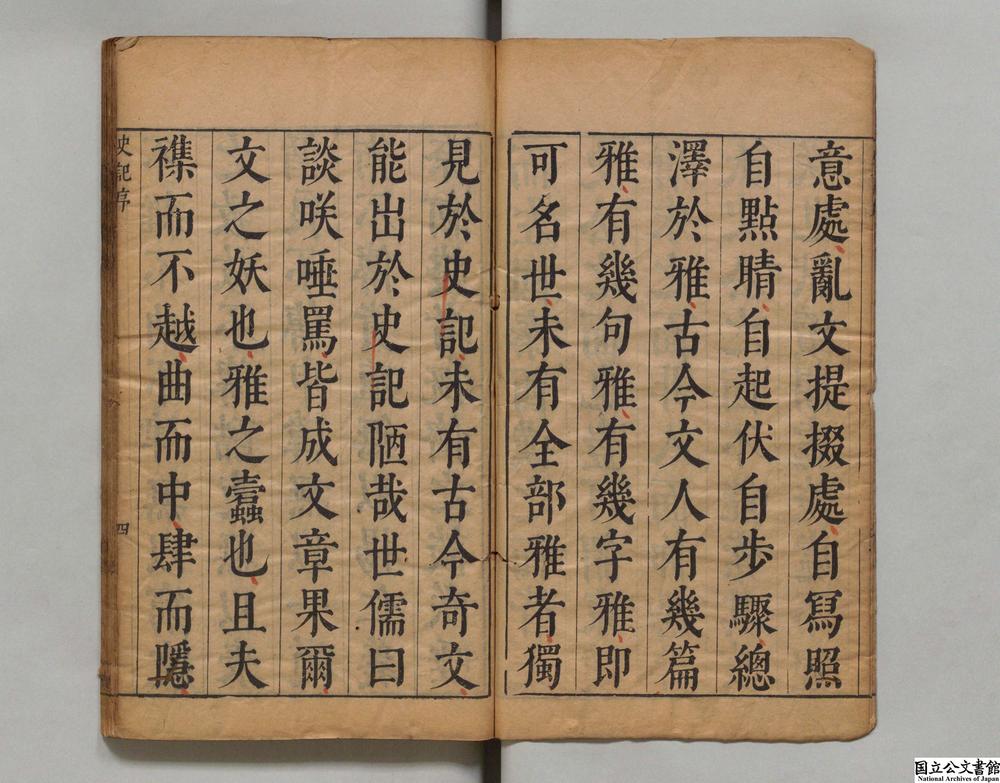 意處亂文提掇處自冩照
自點睛自起伏自步驟總
澤於雅古今文人有幾篇
雅有幾句雅有幾字雅即
可名世未有全部雅者獨
見於史記未有古今奇文
能出於史記陋哉世儒曰
談咲唾罵皆成文章果爾
文之妖也雅之蠹也且夫
襍而不越曲而中肆而隱
史記序
四
国立公文書館
National Archives of Japan